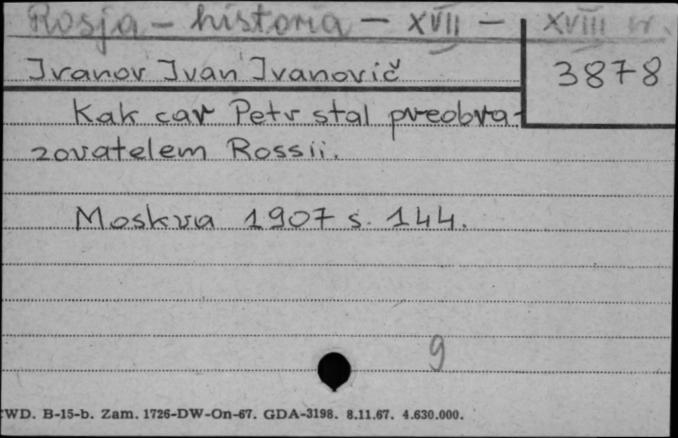 Rosja - historia - XVII - XVIII w.
Ivanov Ivan Ivanovič
3878
Kak car Petr stal preobra-
zovatelem Rossii.
Moskva 1907 s. 144.
9
WD. B-15-b. Zam. 1726-DW-On-67. GDA-3198. 8.11.67. 4.630.000.